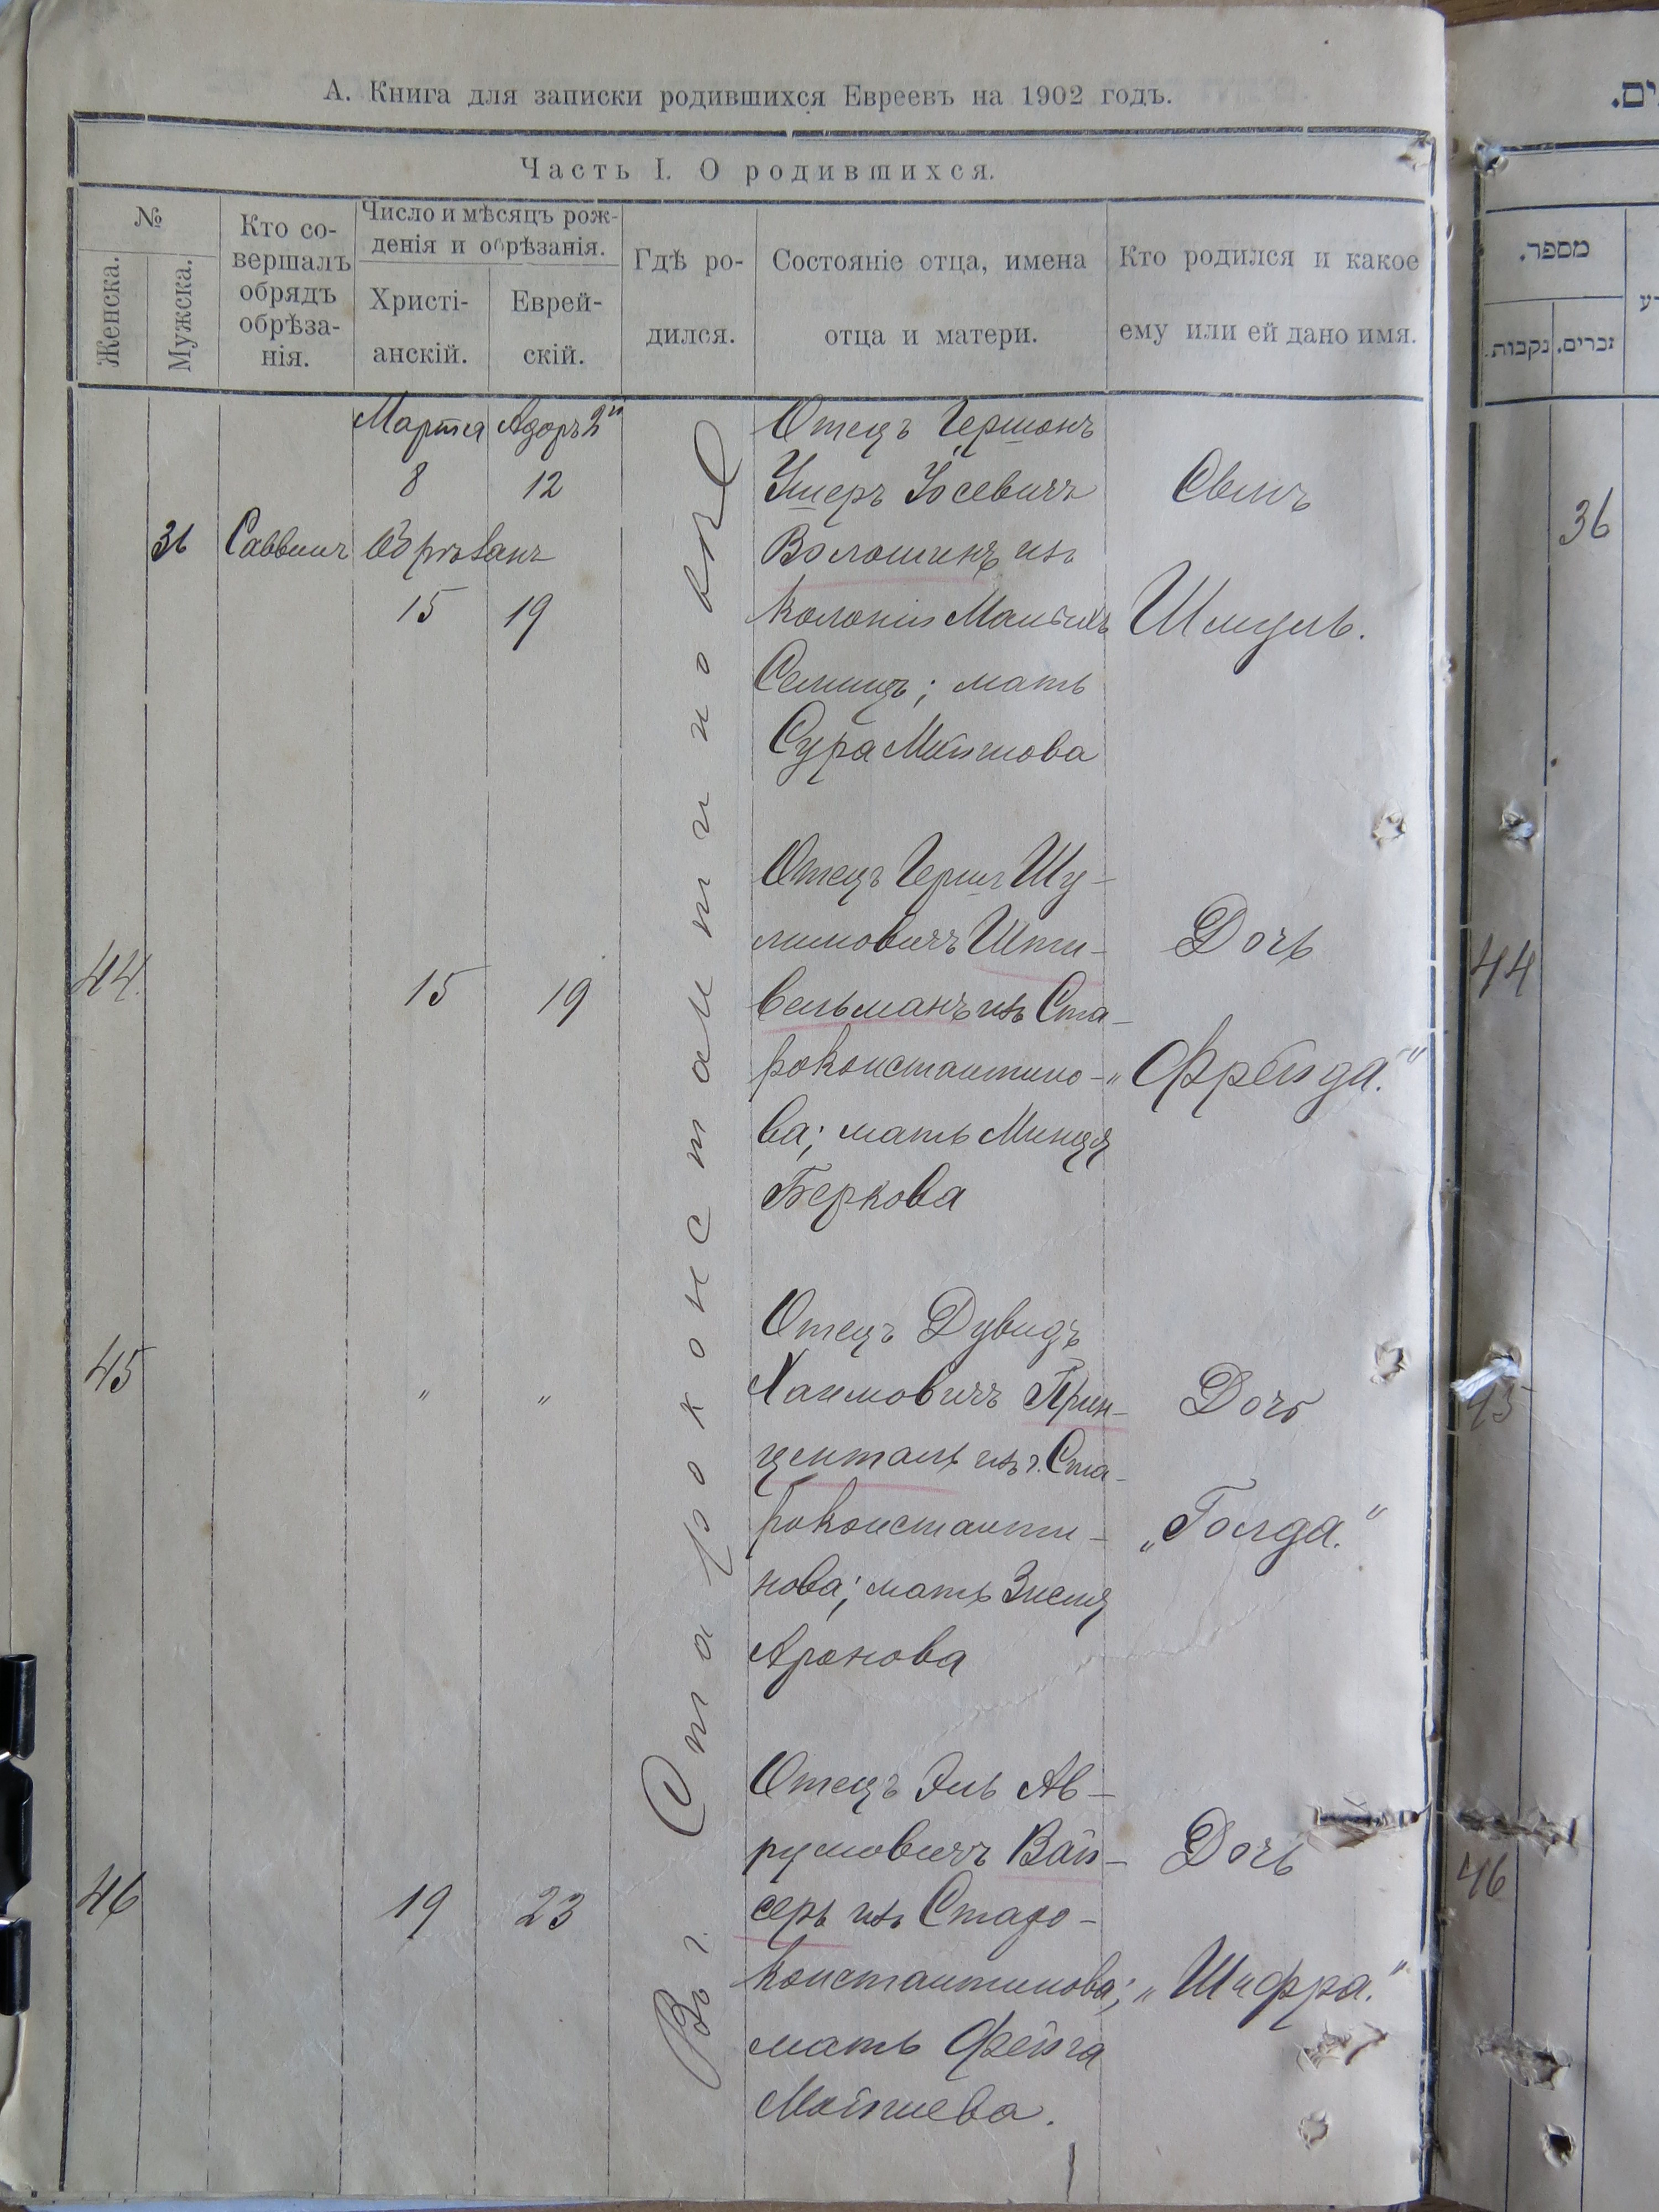 А. Книга для записки родившихся Евреевъ на 1902 годъ.
Часть I. О родившихся.
№
Женска.
Мужска.
Кто со-
вершалъ
обрядъ
обрѣза-
нія.
Число и мѣсяцъ рож-
денія и обрѣзанія.
Христі-
анскій.
Еврей-
скій.
Гдѣ ро-
дился.
Состояніе отца, имена
отца и матери.
Кто родился и какое
ему или ей дано имя.
Въ г. Староконстантиновѣ
36
Саввинъ
Марта
Адоръ 2й
8
12
Обрѣзанъ
15
19
Отецъ Гершонъ
Ушеръ Іосевичъ
Волошинъ изъ
колоніи
мать
Сура
Сынъ
Шмуль.
44
15
19
Отецъ Герш Шу-
лимовичъ Шти-
вельманъ изъ Ста-
роконстантино-
ва; мать Минця
Беркова
Дочь
„Фрейда."
45
"
"
Отецъ Дувидъ
Хаимовичъ Прин-
центаль изъ г. Ста-
роконстанти-
нова; мать Зися
Аронова
Дочь
„Голда."
46
19
23
Отецъ Эль Ав-
румовичъ Вай-
серъ изъ Старо-
константинова;
мать Фейга
Мойшева.
Дочь
„Шифра."
ים.
מספר.
זכרים.
נקבות.
36
44
45
46